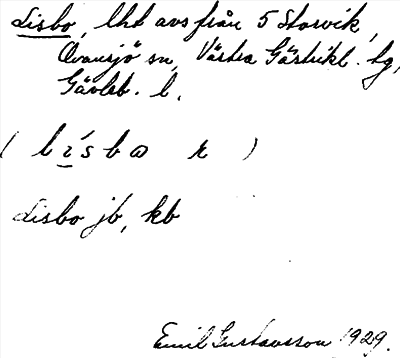 Lisbo, lht avs från 5 Storvik,
Ovansjö sn, Västra Gästrikl. tg,
Gävleb. l.
( lı̄́sbω r )
Lisbo jb, kb
Emil Gustavsson 1929.